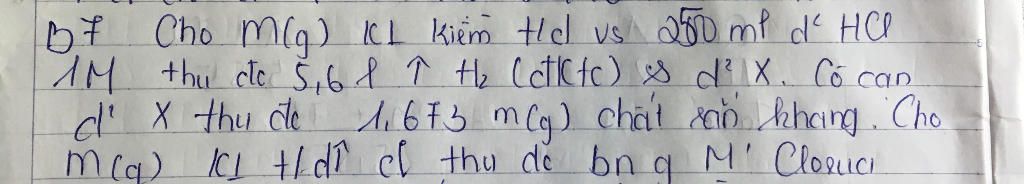 b7 Cho m(g) KL kiềm t/d vs 250 ml d² HCl
1M thu đc 5,6 l ↑ H₂ (đktc) & d² X. Cô cạn
d² X thu đc 1,673 m(g) chất rắn khang. Cho
m(g) KL t/d ↑ cl thu đc bn g M' Clorua